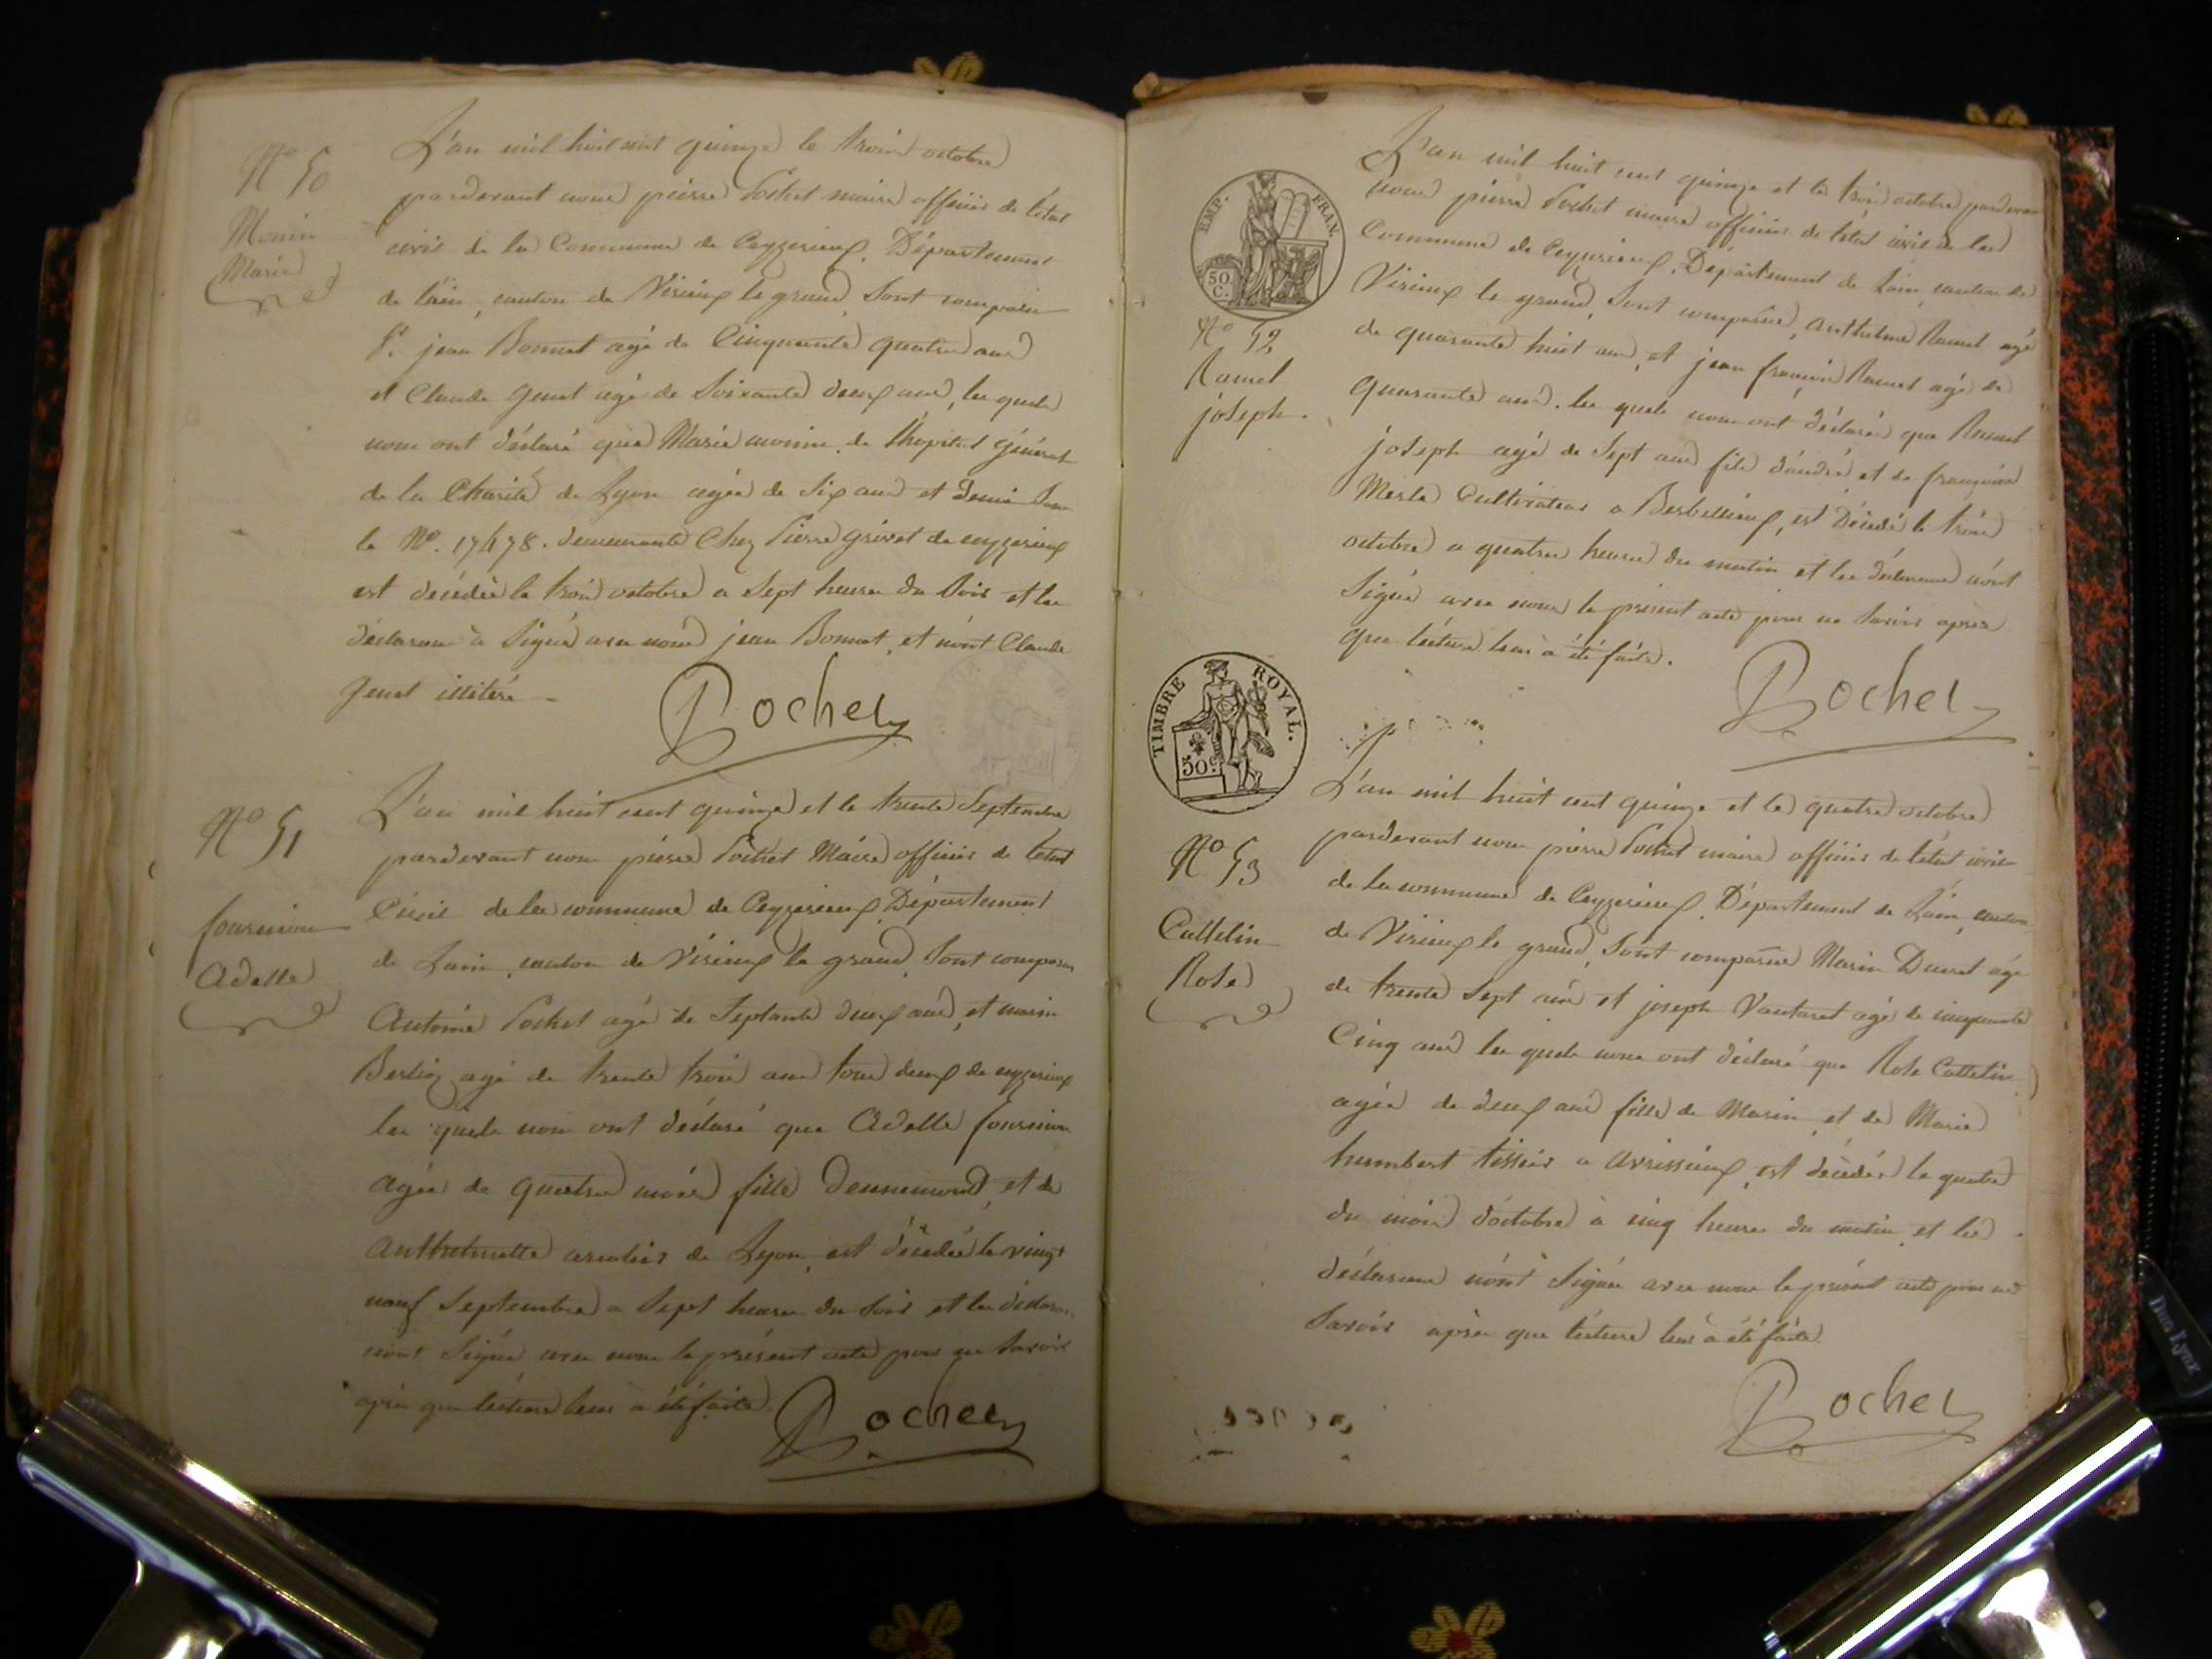 N° 50
Monin
Marie
L'an mil huit cent quinze le trois octobre
pardevant nous pierre Pochet maire officier de l'etat
civil de la Commune de Ceyzerieux, Département
de l'ain, canton de Virieux le grand, Sont comparu
Sr. jean Bonnet agé de Cinquante quatre ans
et Claude genet agé de Soixante deux ans, les quels
nous ont déclaré que Marie monin, de l'hopital général
de la Charité de Lyon agée de Six ans et demi Sous
le N°. 17478. demeurante Chez Pierre grivet de ceyzerieux
est decédée le trois octobre a Sept heures du Soir et les
déclarans à Signé avec nous jean Bonnet, et n'ont Claude
genet illitéré
Pochet
N° 51
fournion
Adelle
L'an mil huit cent quinze et le trente Septembre
pardevant nous pierre Pochet Maire officier de l'etat
Civil de la commune de Ceyzerieux, Département
de Lain, canton de Virieux le grand, Sont comparus
Antoine Pochet agé de Septante deux ans, et marin
Berlioz agé de trente trois ans tous deux de ceyzerieux
les quels nous ont déclaré que Adelle fournion
agée de quatre mois fille Dennemond, et de
Anthelmette de Lyon, est décédée le vingt
neuf Septembre a Sept heures du Soir et les déclarans
n'ont Signé avec nous le présent acte pour ne Savoir
après que lecture leur à été faite.
Pochet
EMP. FRAN.
50 C.
N° 52
Ramel
joseph.
L'an mil huit cent quinze et le trois octobre pardevant
nous pierre Pochet maire officier de l'etat civil de la
Commune de Ceyzerieux, Département de Lain, canton de
Virieux le grand, Sont comparus, Anthelme Ramel agé
de quarante huit ans, et jean françois Ramel agé de
quarante ans. les quels nous ont déclaré que Ramel
joseph agé de Sept ans fils d'andré et de françoise
Merle Cultivateur a Berbellieux, est Décédé le trois
octobre a quatre heures du matin et les déclarans n'ont
Signé avec nous le présent acte pour ne Savoir après
que lecture leur à été faite.
Pochet
TIMBRE ROYAL.
50c
N° 53
Cattelin
Rose
L'an mil huit cent quinze et le quatre octobre
pardevant nous pierre Pochet maire officier de l'etat civil
de la commune de Ceyzerieux, Département de Lain, canton
de Virieux le grand, Sont comparus Marin Ducret agé
de trente Sept ans et joseph Vautaret agé de cinquante
Cinq ans les quels nous ont déclaré que Rose Cattelin
agée de deux ans fille de Marin, et de Marie
humbert tissier a Avrissieux, est décédée le quatre
du mois d'octobre à cinq heures du matin, et les
déclarans n'ont Signée avec nous le présent acte pour ne
Savoir après que lecture leur à été faite.
Pochet